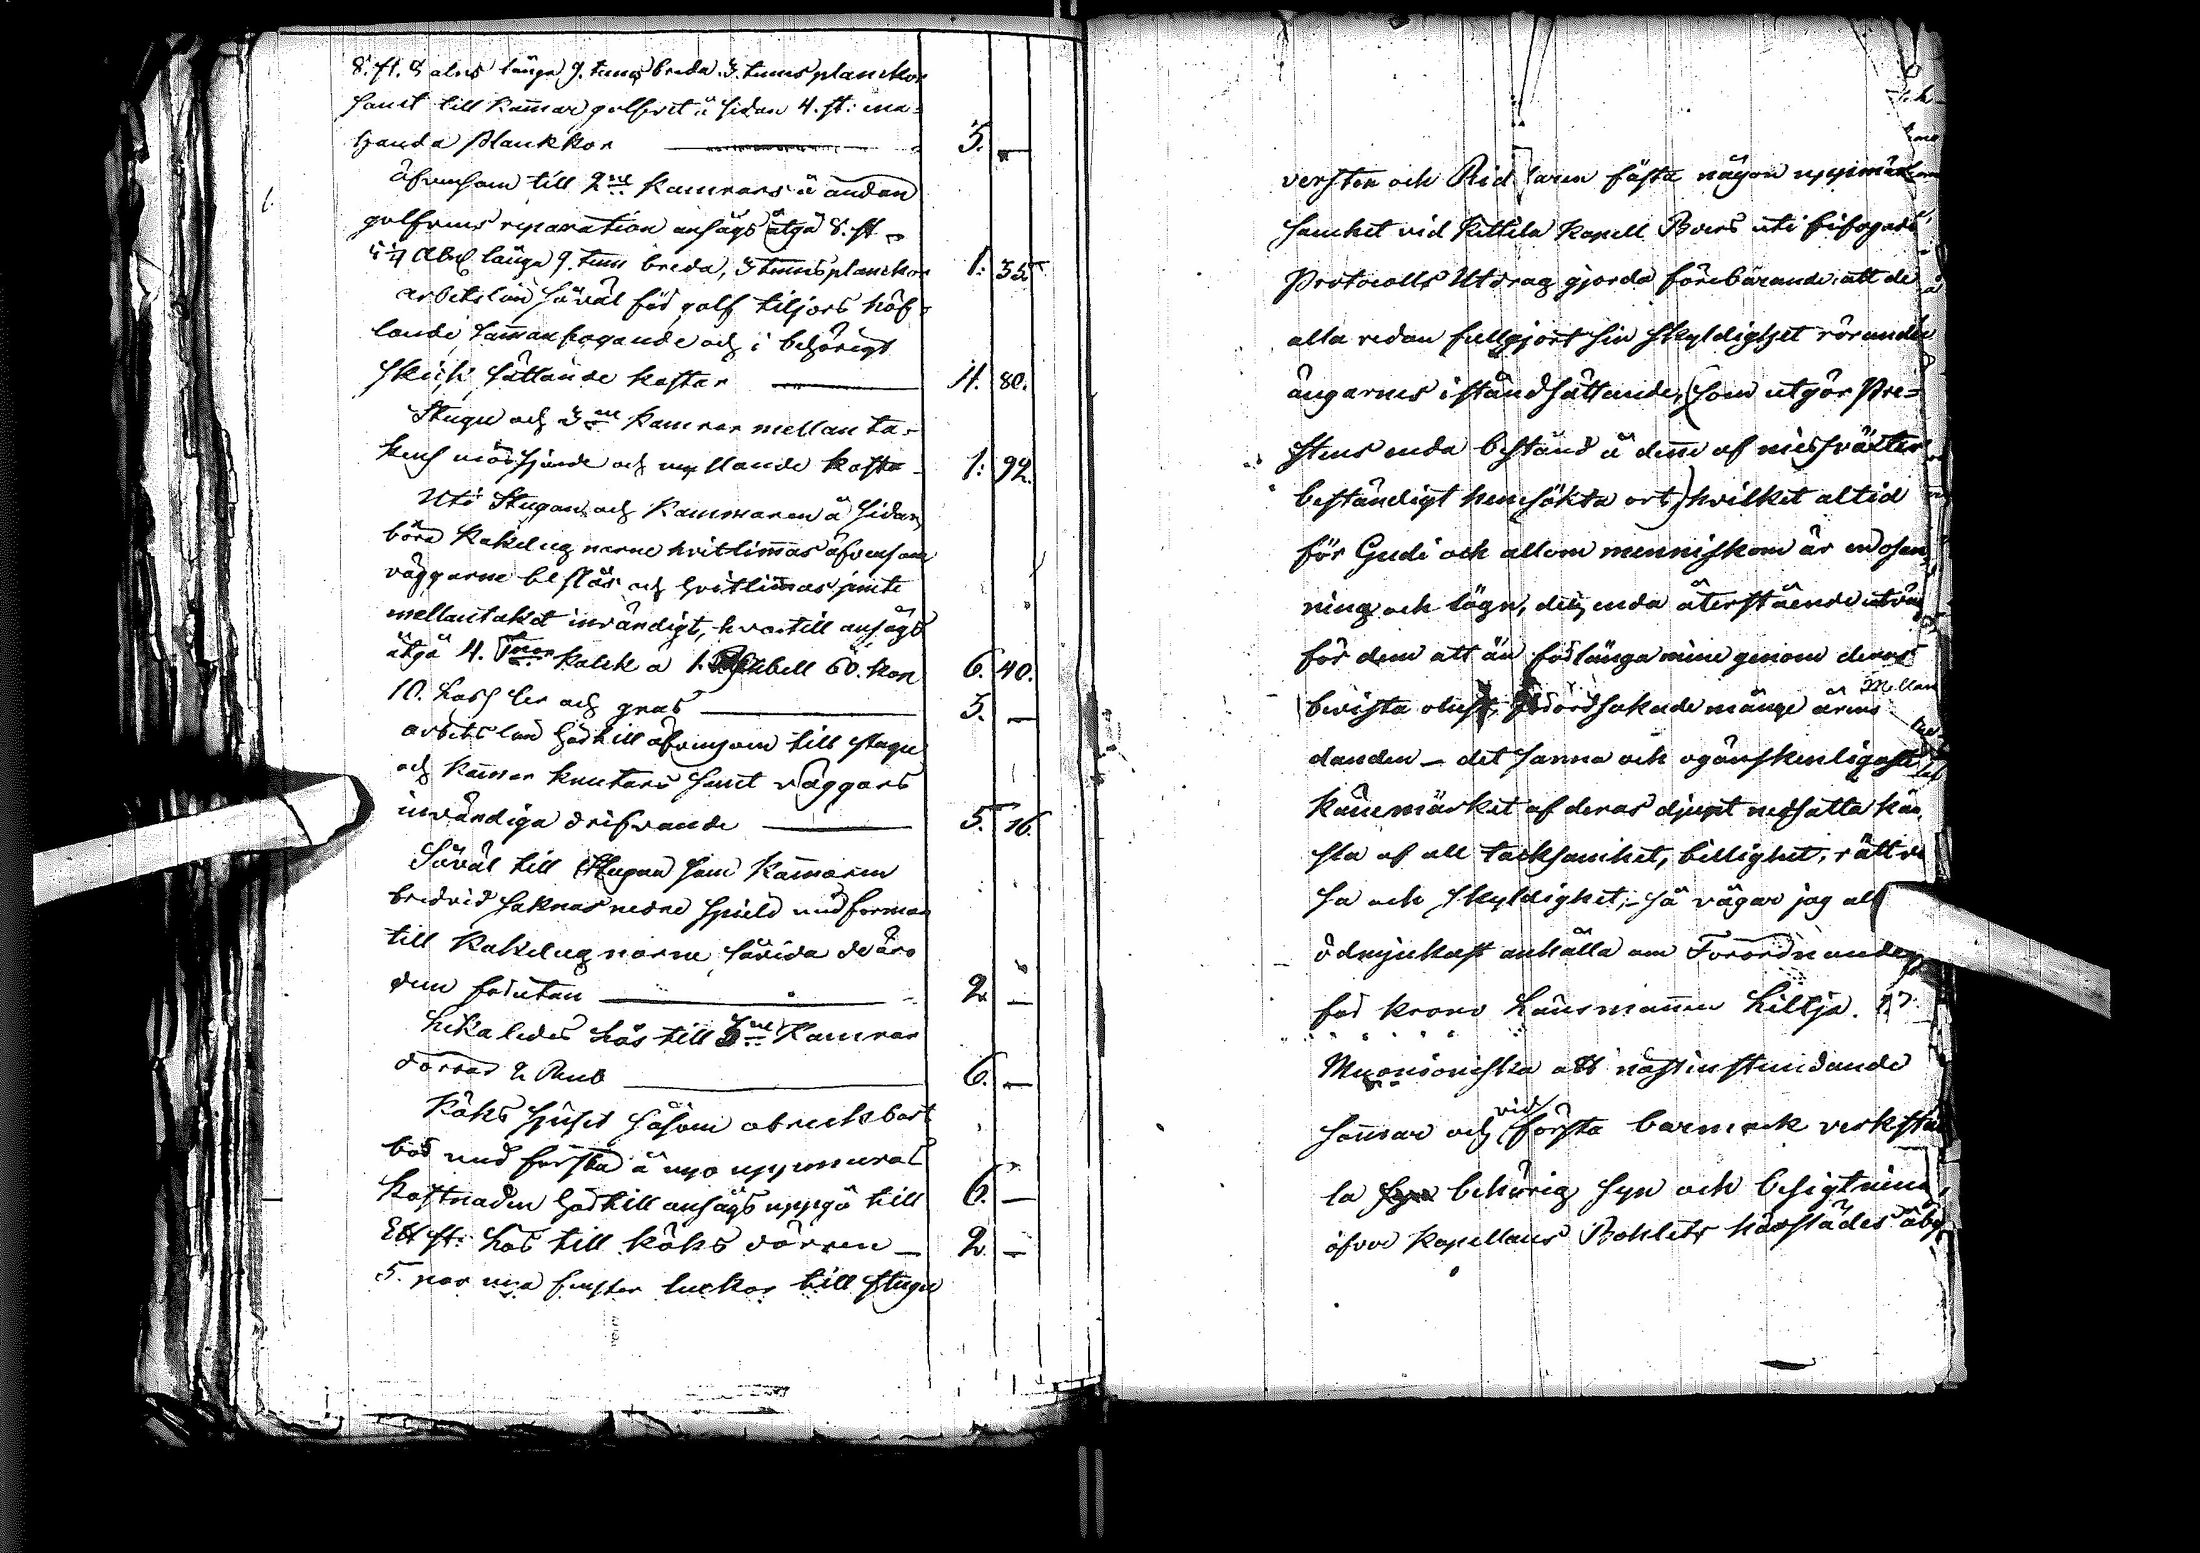 8. st. 8 alns långa 9. tums breda 3. tums planckor
samt till Kammar golfvet å sidan 4. st: ena-
handa Planckor 3. —
äfvensom till 2ne Kamrars å ändan
golfvens reparation ansågs åtgå 8. st
långa 9. tum breda, 3 tums planckor 1: 35
arbetslön såväl för golf tiljors höf-
lande, sammanfogande och i behörigt
skick sättande kostar 4. 80.
Stugu och 3ne Kamrar mellanta-
kens och myllande kosta 1: 92.
Uti Stugan och Kammaren å sidan
böra Kakelugnarne hvitlimmas äfvensom
väggarne beslås och hvitlimmas jemte
mellantaket invändigt, hvartill ansågs
åtgå 4. Tnor Kalck a 1. Rubell 60. kop 6. 40.
10. Lass ler och 3. —
arbetslön härtill äfvensom till stugu
och Kammar knutars samt väggars
invändiga drifvande 5. 16.
Såväl till Stugan som Kammaren
bredvid saknas nedre spield med formar
till Kakelugnarne, såvida de äro
dem förutan 2. —
Likaledes lås till 3ne Kamrar
dörrar 2 Rub 6. —
Köks spisel såsom obruckbart
bör med första å nyo uppmuras
Kostnaden härtill ansågs uppgå till 6. —
Ett st: Lås till köks dörren — 2. —
5. par nya fenster luckor till stugu
versten och Riddaren fästa någon uppmärk
samhet vid Kittila Kapell Boers uti bifogade
Protocolls Utdrag gjorda förebärande, att de
alla redan fullgjort sin skyldighet rörande
ängarnes iståndsättande, (som utgör Pre-
stens enda bestånd å denne af missväxter
beständigt hemsökta ort) hvilket altid
för Gudi och allom menniskom är en osan
ning och lögn, den enda återstående utväg
för dem att än förlänga mine genom deras
bevista olust, förordsakade många årens Mellan
danden — det sanna och ogenskenligaste
Kännemärket af deras djupt nedsatta Kän
sla af all tacksamhet, billighet, rättvi
sa och skyldighet; — så vågar jag all
ödmjukast anhålla om Förordnande
för Krono Länsmannen Liltja.
Muonioniska att nästinstundande
sommar och vid första barmark verkstäl
la behörig syn och besigtning
öfver Kapellans Bohlets härstädes åby